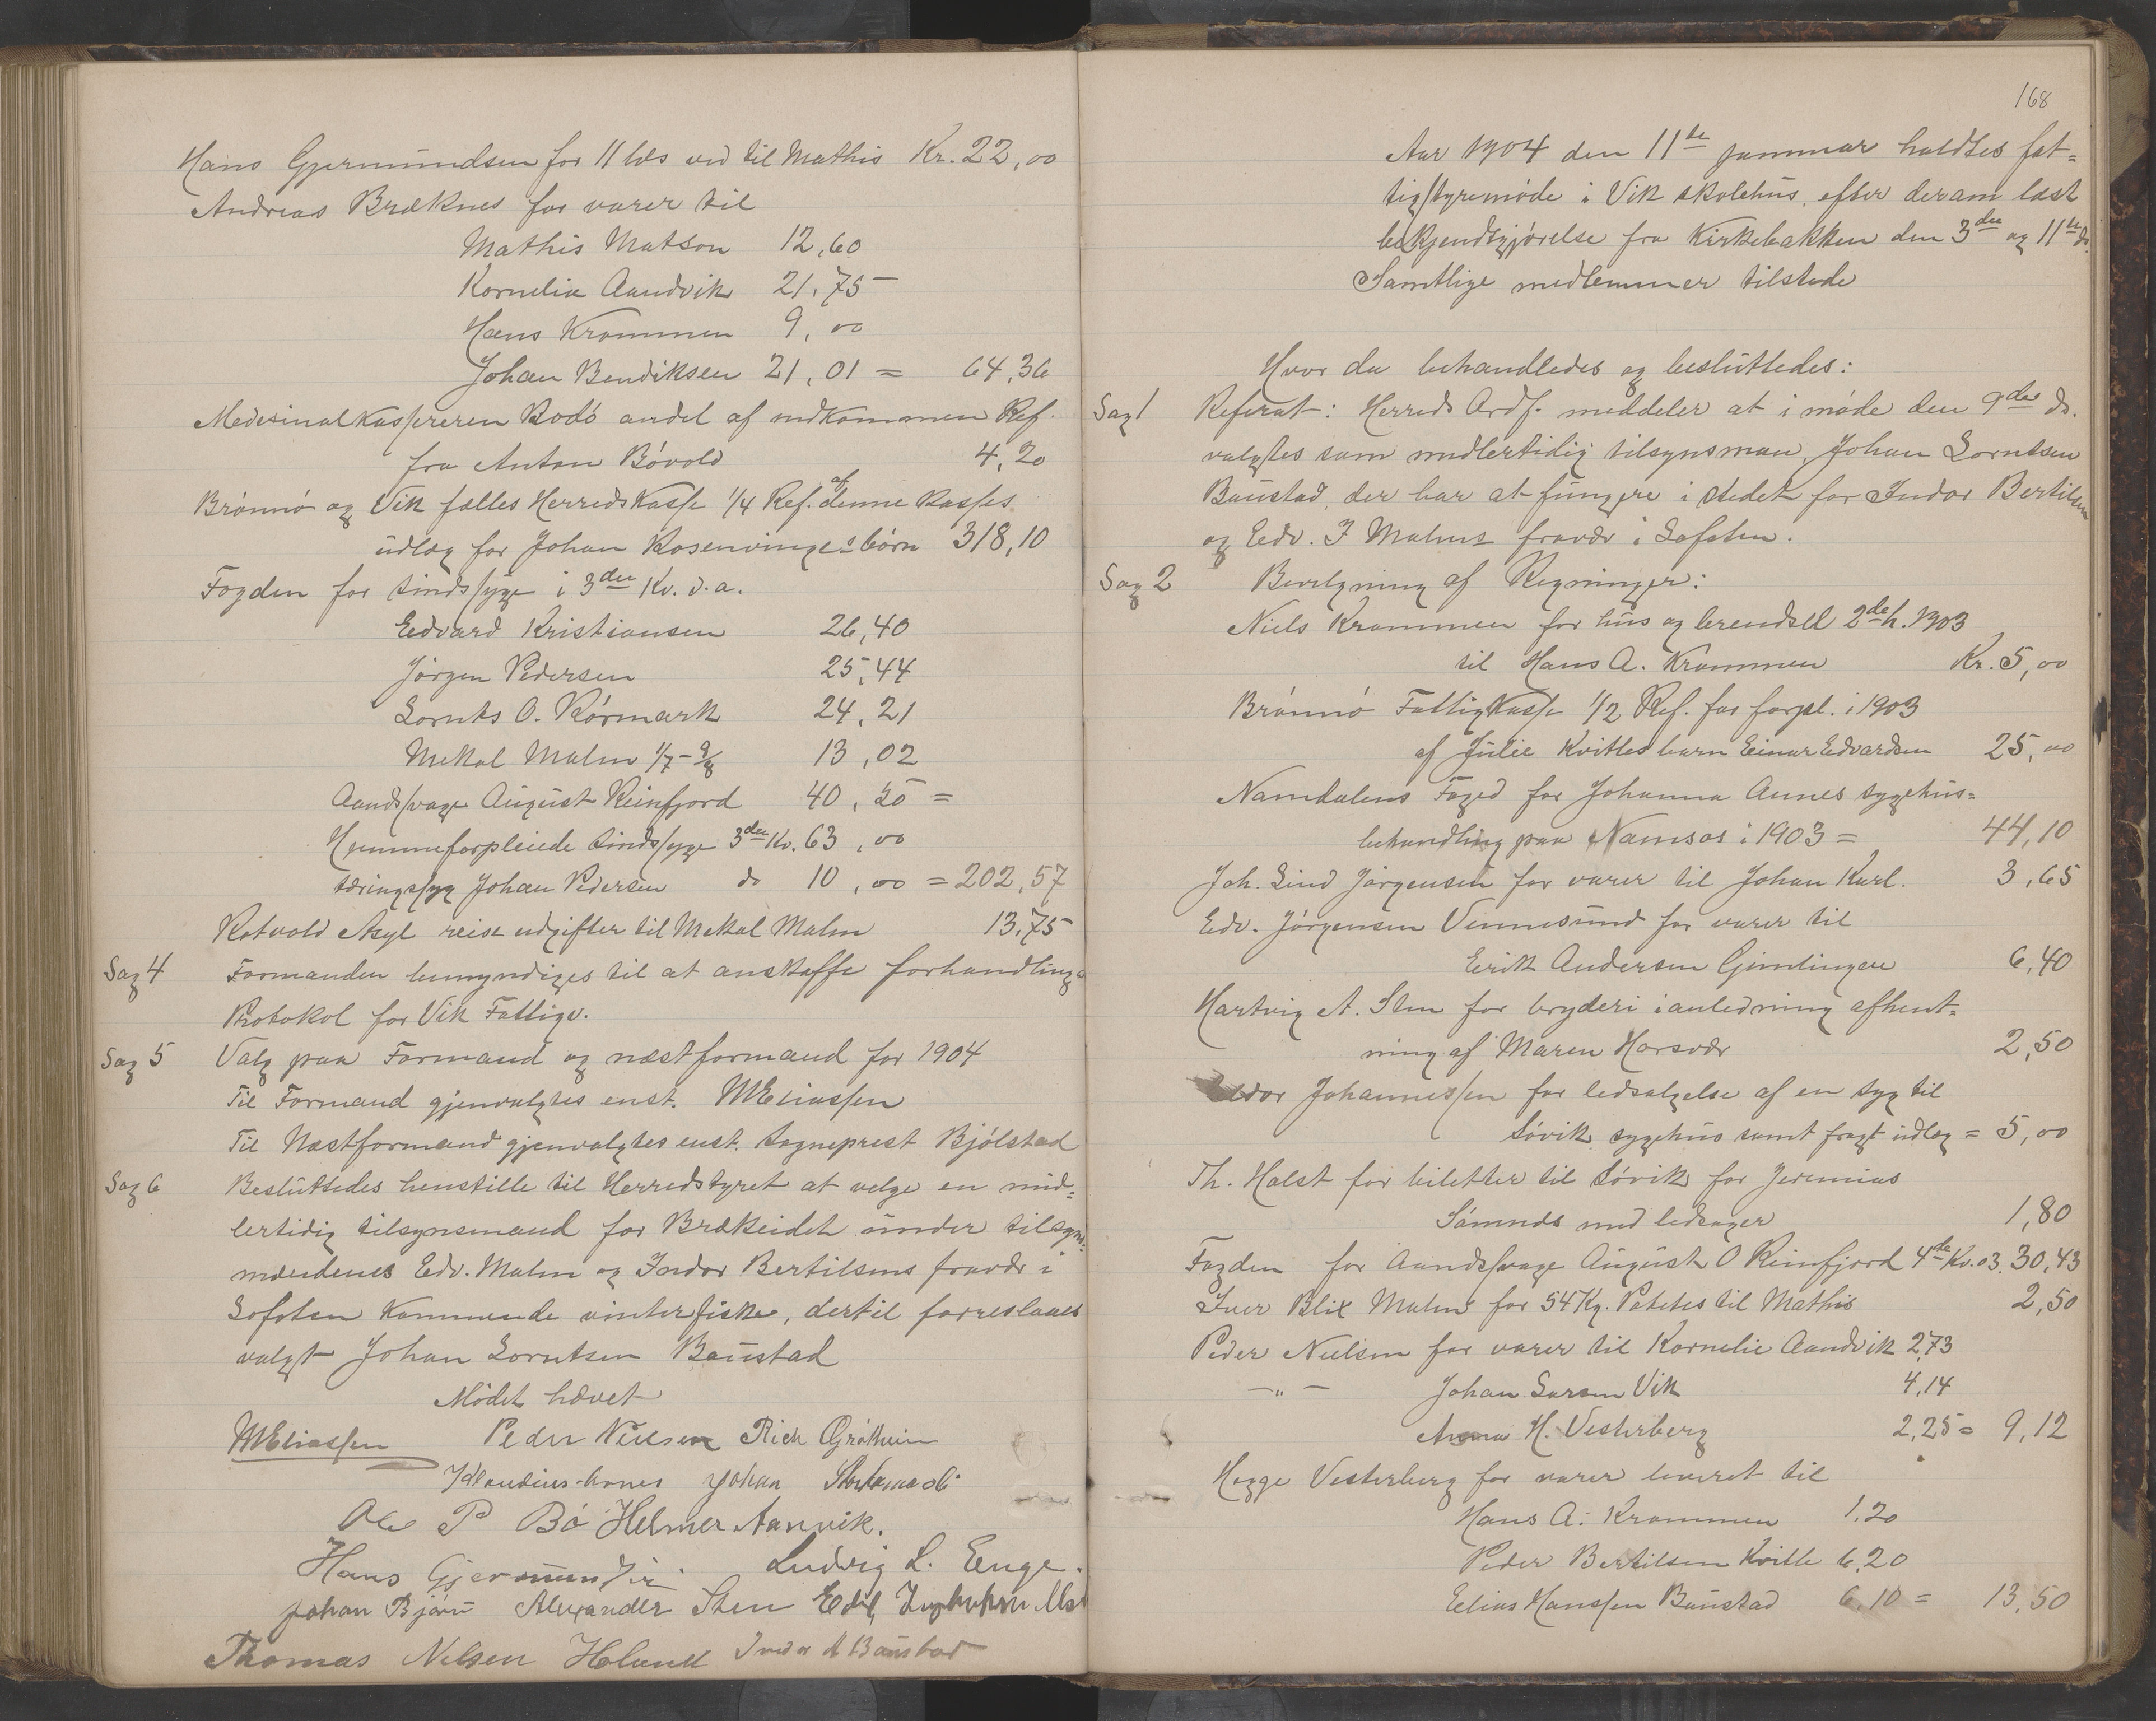 Hans Gjermundsen for 11 læs ved til Mathis Kr. 22,00
Andreas Bræknes for varer til
Mathis Matson 12,60
Kornelia Aandvik 21,75
Hans Krommen 9,00
Johan Bendiksen 21,01 = 64,36
Medesinalkassereren Bodö andel af indkommen Ref.
fra Anton Bövold 4,20
Brönnö og Vik fælles Herredskasse 1/4 Ref. af denne kasses
udlæg for Johan Rosenvinges börn 318,10
Fogden for sindssyge i 3die Kv. d.a.
Edvard Kristiansen 26,40
Jörgen Pedersen 25,44
Lornts O. Rörmark 24,21
Mekal Malm 1/7 - 9/8 13,02
Aandssvage August Reinfjord 40,50 =
Hjemmeforpleiede sindssyge 3die Kv. 63,00
tæringssyg Johan Pedersen do 10,00 = 202,57
Rotvold Asyl reise udgifter til Mekal Malm 13,75
Sag 4 Formanden bemyndiges til at anskaffe forhandlings
Protokol for Vik Fattigv.
Sag 5 Valg paa Formand og næstformand for 1904
Til Formand gjenvalgtes enst. MEliassen
Til Næstformand gjenvalgtes enst. Sogneprest Bjölstad
Sag 6 Besluttedes henstille til Herredstyret at velge en mid=
lertidig tilsynsmand for Brækeidet under tilsyns=
mændenes Edv. Malm og Indor Bertilsens fravær i
Lofoten kommende vinterfiske, dertil foreslaaes
valgt Johan Lorntsen Baustad
Mödet hævet
MEliassen Peder Nielsen Rich Gröttheim
Klaudius Johan
Ole P Bö Helmer Aanvik.
Hans Gjermundsen. Ludvig L. Enge.
Johan Bjørn Alexander Sten Edv.
Thomas Nilsen Holand Indor Baustad
168
Aar 1904 den 11te januar holdtes fat=
tigstyremöde i Vik skolehus, efter derom læst
bekjendtgjörelse fra Kirkebakken den 3die og 11te ds.
Samtlige medlemmer tilstede
Hvor da behandledes og besluttedes:
Sag 1 Referat: Herreds Ordf. meddeler at i möde den 9de ds.
valgtes som midlertidig tilsynsman, Johan Lorntsen
Baustad, der har at fungere i stedet for Indor Bertilsen
og Edv. J Malms fravær i Lofoten.
Sag 2 Bevilgning af Regninger:
Niels Krommen for hus og brendsel 2det h. 1903
til Hans A. Krommen Kr. 5,00
Brönnö Fattigkasse 1/2 Ref. for forpl. i 1903
af Julie Kvitles barn Einar Edvardsen 25,00
Namdalens Foged for Johanna Aunes sygehus=
behandling paa Namsos i 1903 = 44,10
Joh. Lind Jörgensen for varer til Johan Karl. 3,65
Edv. Jörgensen Vennesund for varer til
Erik Andersen Gimlingen 6,40
Hartvig A. Sten for bryderi i anledning afhent=
ning af Maren Horsvær 2,50
Johannessen for ledsagelse af en syg til
Sövik sygehus samt fragt udlæg = 5,00
Th. Holst for biletter til Sövik for Jeremias
Sömnes med ledsager 1,80
Fogden for Aandssvage August O Reinfjord 4de Kv. 03. 30,43
Iver Blix Malm for 54 Kg. Potetes til Mathis 2,50
Peder Nielsen for varer til Kornelie Aandvik 2,73
— " — Johan Larsen Vik 4,14
Anna H. Vesterberg 2,25 = 9,12
Hegge Vesterberg for varer leveret til
Hans A. Krommen 1,20
Peder Bertilsen Kvitle 6,20
Elias Hanssen Baustad 6,10 = 13,50